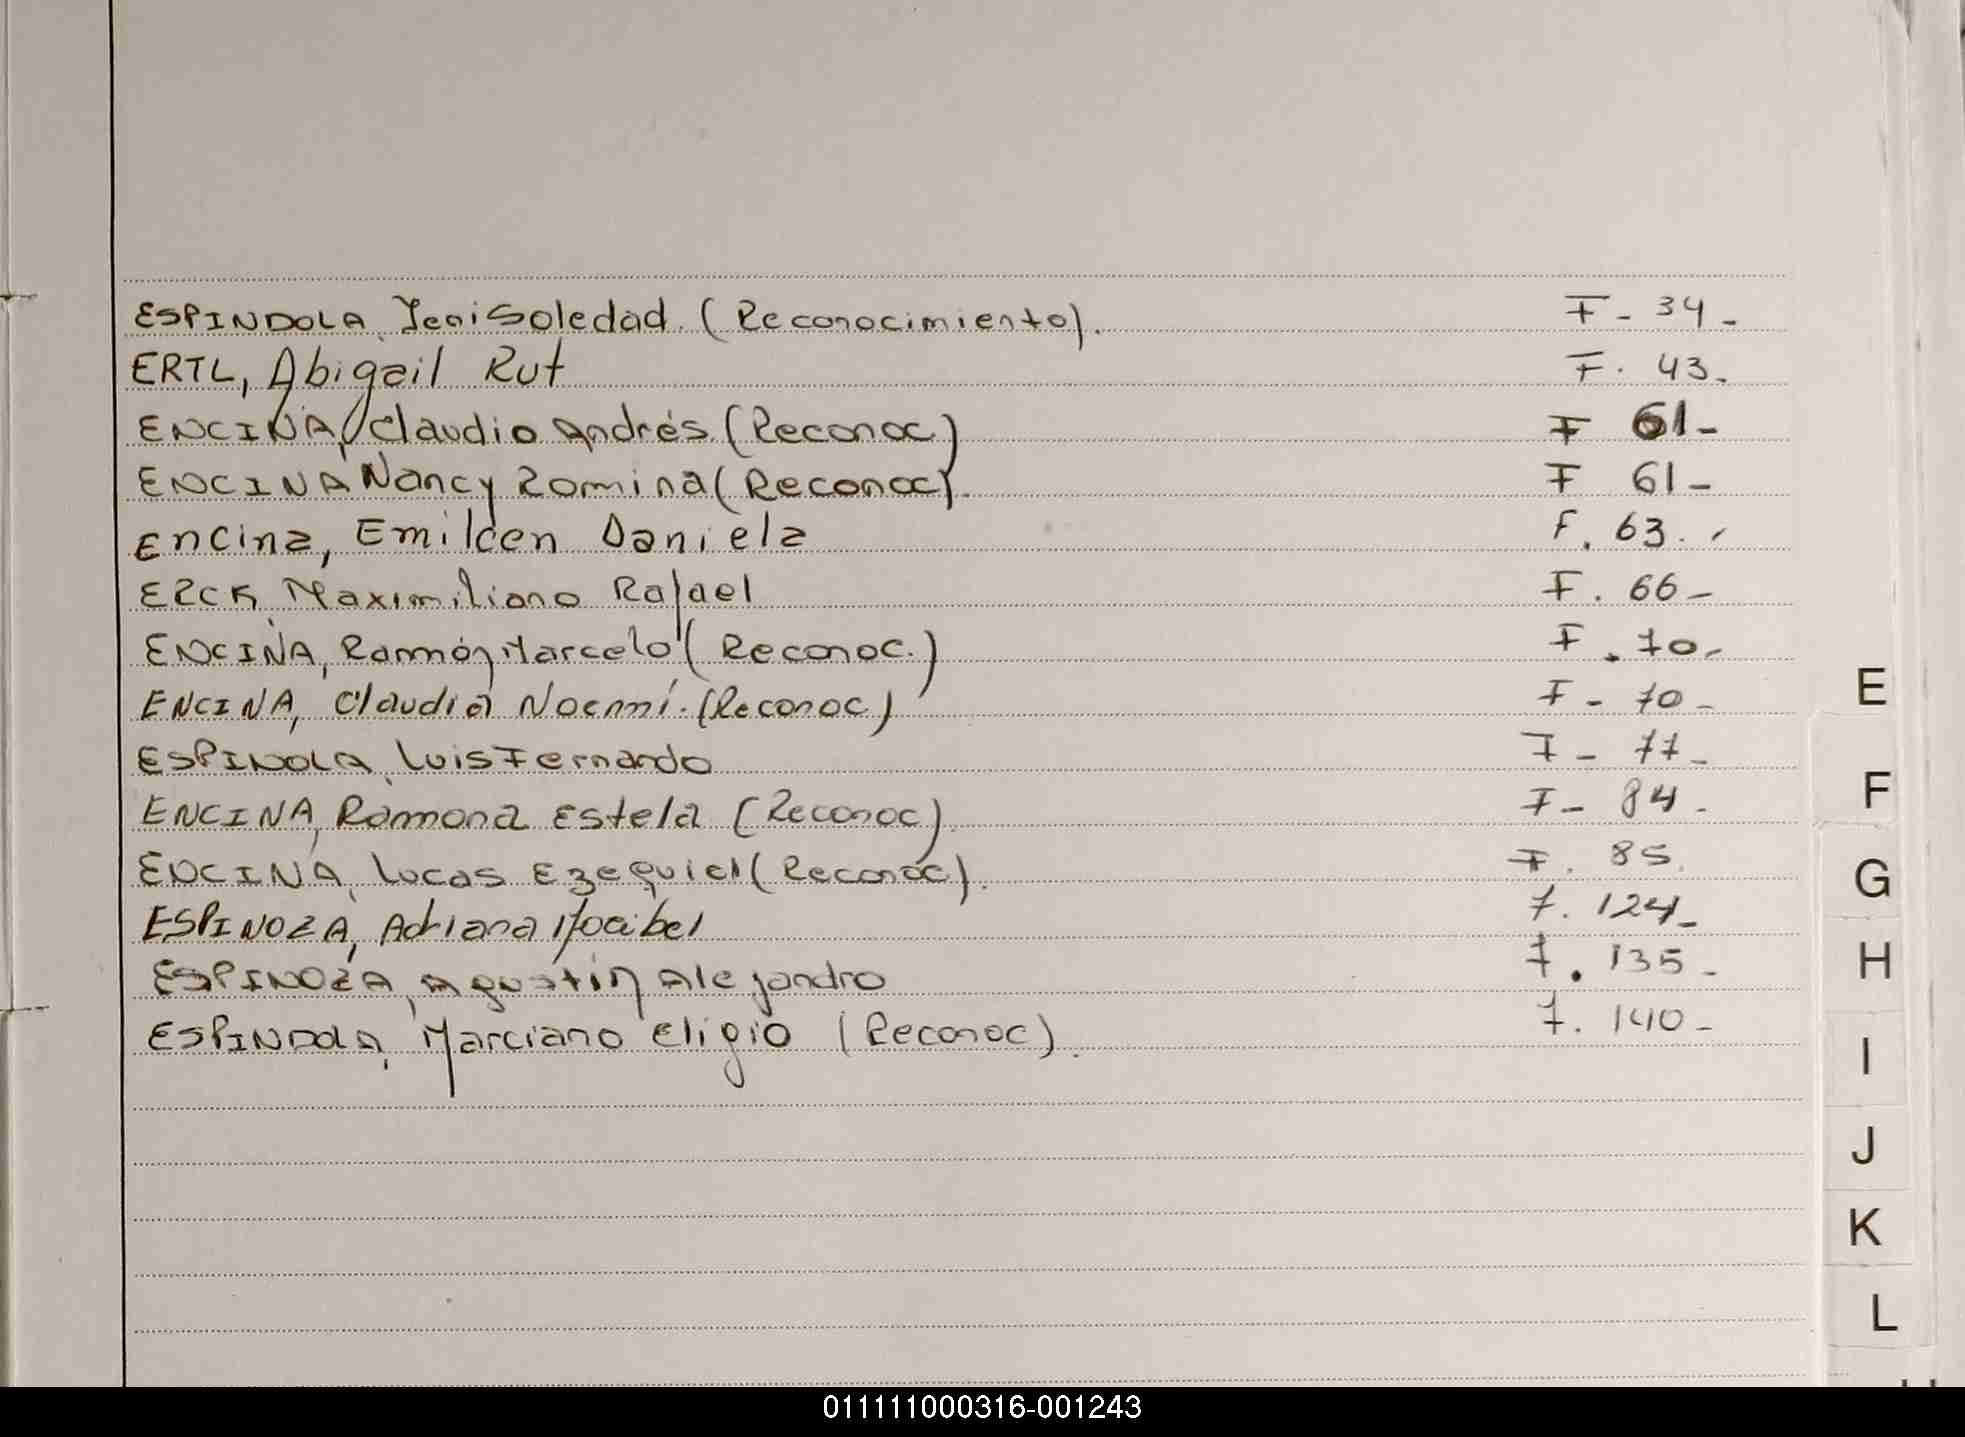 ESPINDOLA, Yeni Soledad. (Reconocimiento). F - 34 -
ERTL, Abigail Rut F. 43.
ENCINA, Claudio Andrés (Reconoc) F 61 -
ENCINA Nancy Romina (Reconoc). F 61 -
Encina, Emilcen Daniela F. 63.
ERCK, Maximiliano Rafael F. 66 -
ENCINA, Ramón Marcelo (Reconoc.) F. 70 -
ENCINA, Claudia Noemí. (Reconoc) F - 70 -
ESPINDOLA, Luis Fernando F - 77 -
ENCINA, Ramona Estela (Reconoc) F - 84 -
ENCINA, Lucas Ezequiel (Reconoc). F. 85.
ESPINOZA, Adriana F. 124 -
ESPINOZA, Agustín Alejandro F. 135 -
ESPINDOLA, Marciano Eligio (Reconoc). F. 140 -
E
F
G
H
I
J
K
L
011111000316-001243